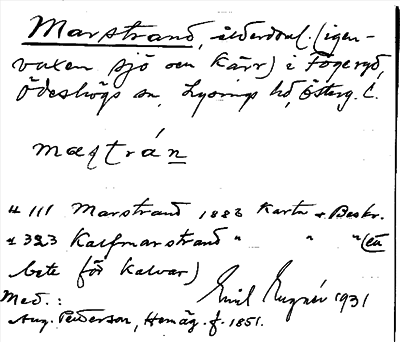 Marstrand, ålderdoml. (igen-
vuxen sjö och kärr) i Fögergd,
Ödeshögs sn, Lysings hd, Österg. l.
maṣtrán
# 111 Marstrand 1883 Karta + Beskr.
# 323 Kalfmarstrand " " " (en
bete för kalvar)
Emil Eugnér 1931
Med.:
Aug. Pederson, Hemäg. f. 1851.